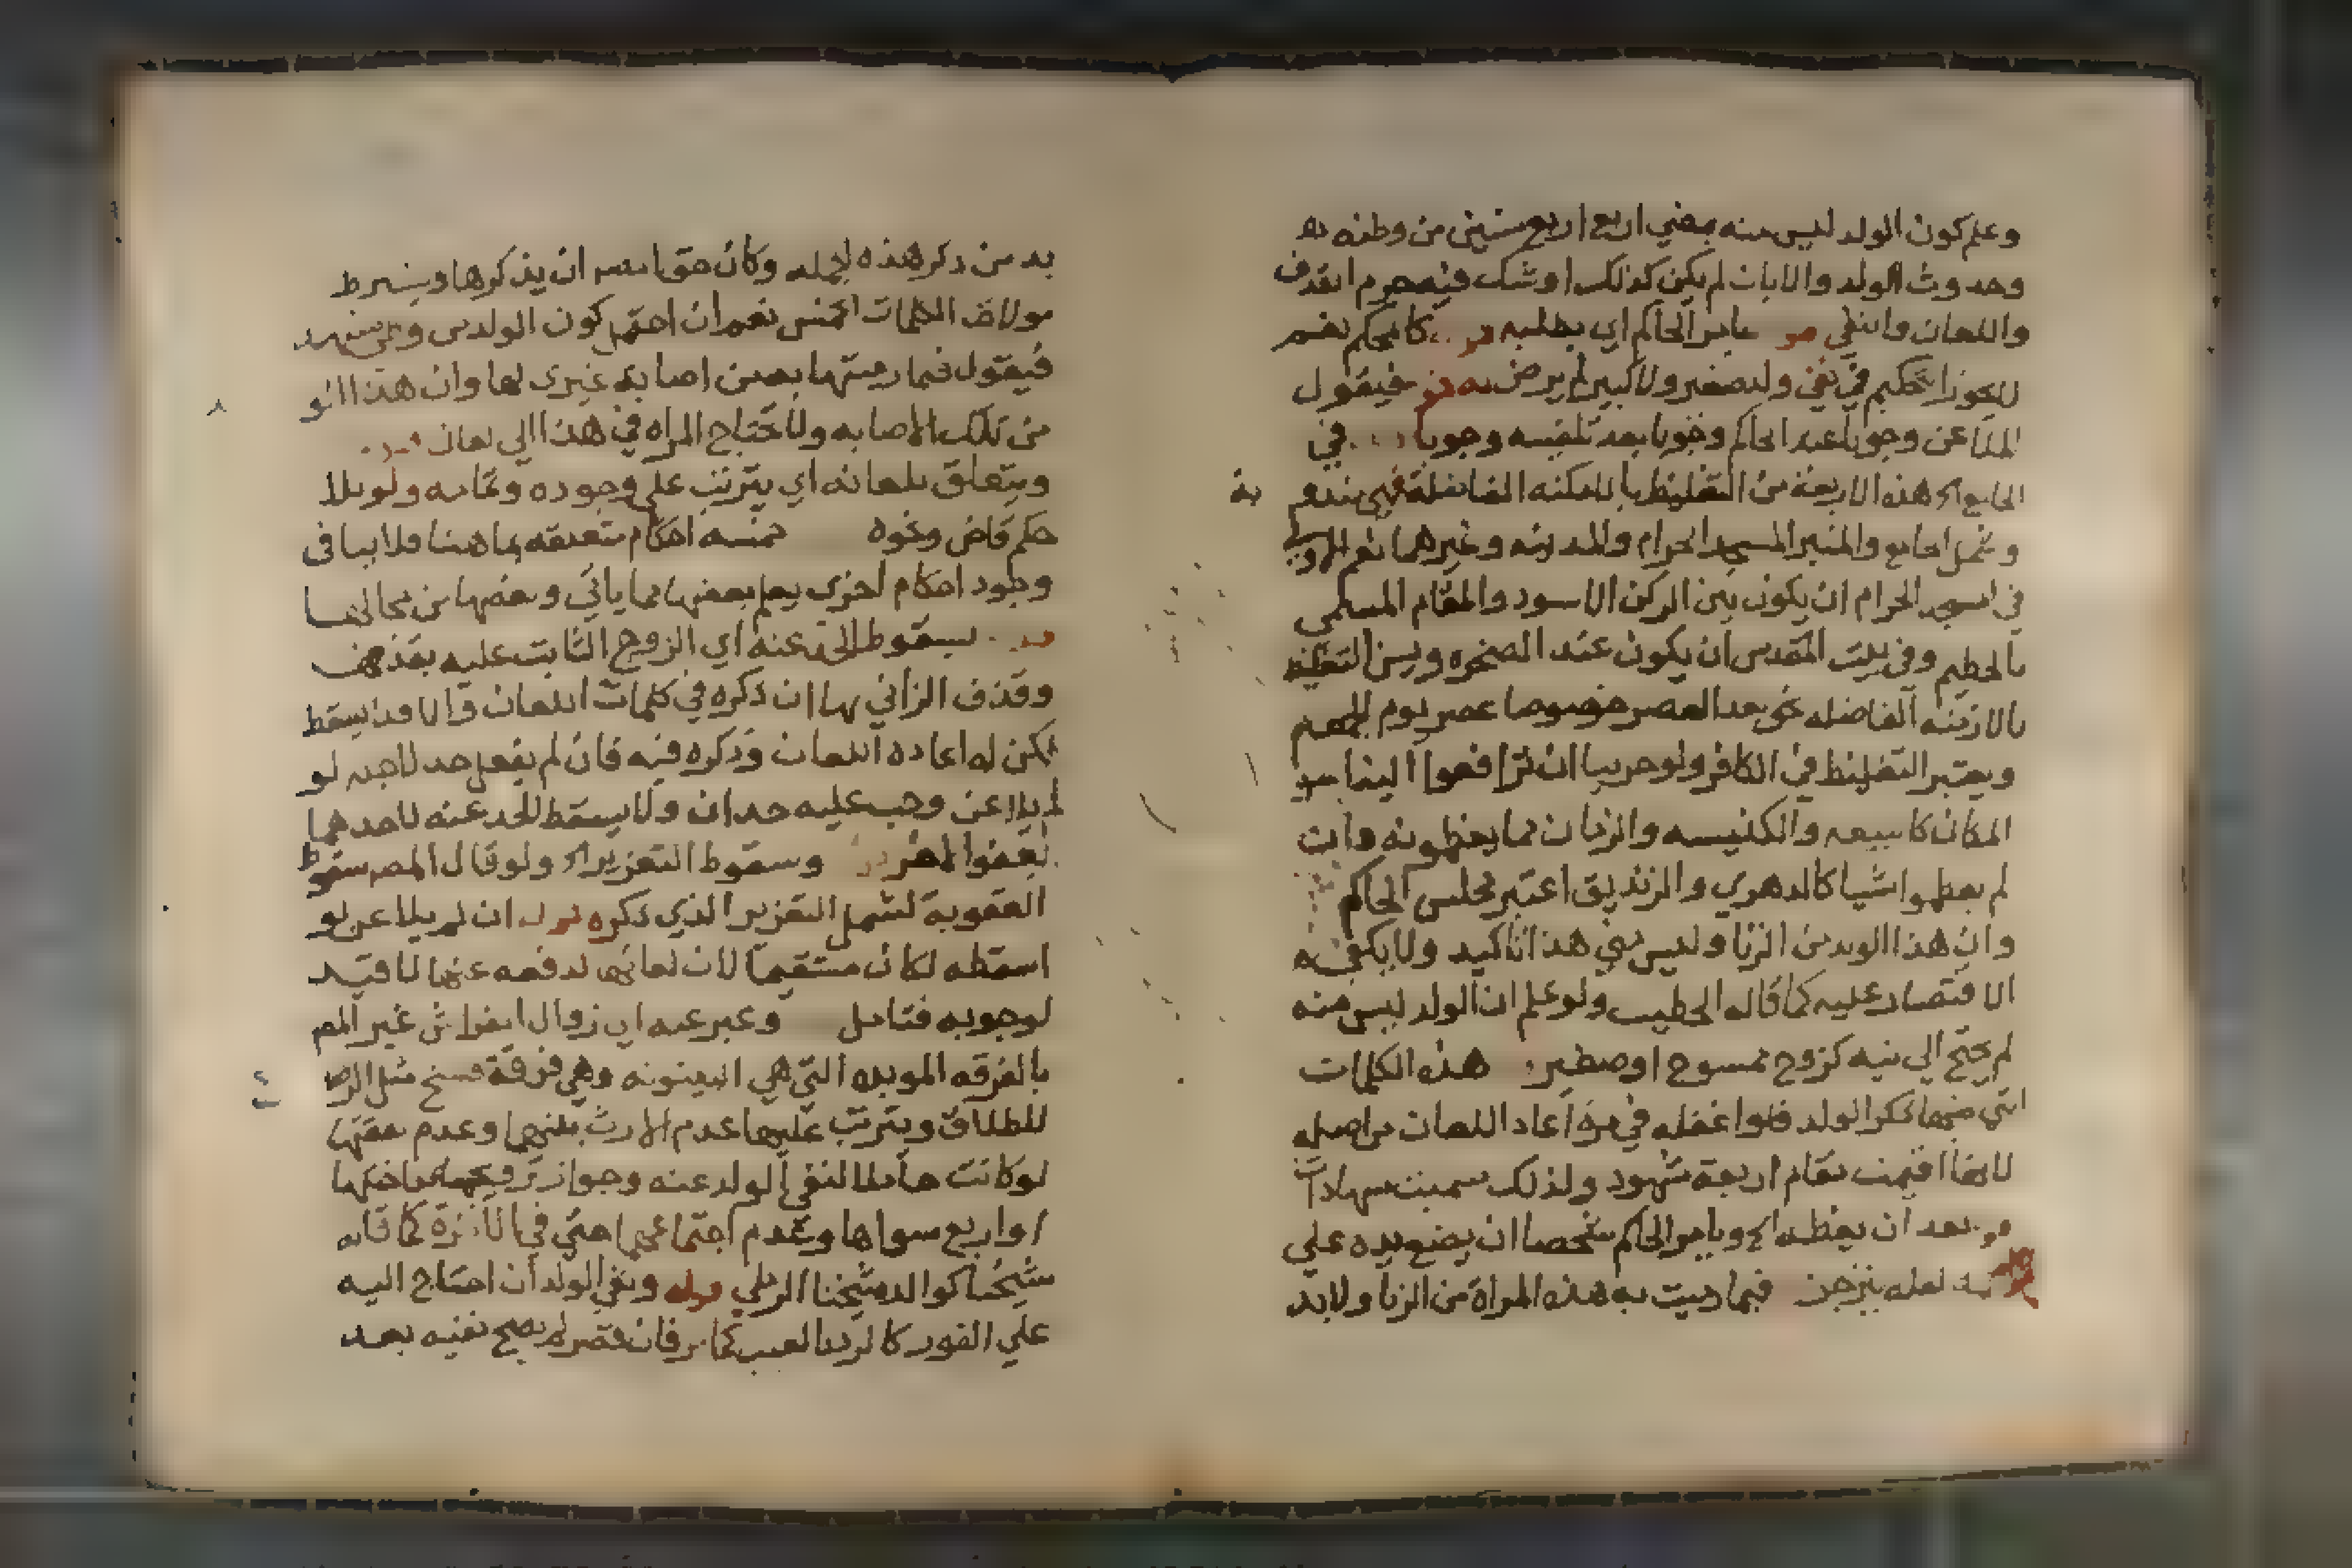 وعلم كون الولد ليس منه بمضي اربع اربع سنين من وطئه
وحدوث الولد والابان لم يكن كذلك او شك فيه حرم القذف
واللعان وانتفي الحاكم اي بطلبه كالمحكم نعم
لا يجوز التحكيم في نفي ولد صغير ولا كبير لم يرض به فيقول
الملاعن وجوبا عند الحاكم وجوبا بعد تلقينه وجوبا في
الجامع هذه الاربعة من التغليظ بالامكنه الفاضلة
وشمل الجامع والمنبر المسجد الحرام والمدينه وغيرهما نعم
في المسجد الحرام ان يكون بين الركن الاسود والمقام المسمي
بالحطيم وفي بيت المقدس ان يكون عند الصخره ويسن التغليظ
بالازمنه الفاضله نحو بعد العصر خصوصا عصر يوم الجمعه
ويعتبر التغليظ في الكافر ولو حربيا ان ترافعوا الينا
المكان كالبيعه والكنيسه والزمان مما يعظمونه وان
لم يعظموا شيا كالدهري والزنديق اعتبر مجلس الحاكم
وان هذا الولد من الزنا وليس مني هذا تاكيد ولا يكفي
الاقتصار عليه كما قاله الخطيب ولو علم ان الولد ليس منه
لم يحتج الي نفيه كزوج ممسوح او صغير هذه الكلمات
التي منها ذكر الولد فلو اغفله في مرة اعاد اللعان من اصله
لانها اقيمت مقام اربعة شهود ولذلك سميت شهادات
بعد ان يعظه ويامر الحاكم شخصا ان يضع يده علي
لعله ينزجر فيما رميت به هذه المراة من الزنا ولا بد
بد من ذكر هذه الجمله وكان حق المص ان يذكرها ويشترط
موالاة الكلمات الخمس نعم ان احتمل كون الولد من
فيقول فيما رميتها به من اصابة غيري لها وان هذا الو
من تلك الاصابه ولا تحتاج المراه في هذا الي لعان
ويتعلق بلعانه اي يترتب علي وجوده وتمامه ولو بلا
حكم قاض ونحوه خمسه احكام متعلقه بما هنا فلا ينافي
وجود احكام اخري يعلم بعضها مما ياتي وبعضها من محالها
سقوط الحد عنه اي الزوج الثابت عليه بقذفه
وقذف الزاني بها ان ذكره في كلمات اللعان والا فلا يسقط
لكن له اعادة اللعان وذكره فيه فان لم يفعل حد لاجنبي لو
لم يلاعن وجب عليه حدان ولا يسقط الحد عنه لاحدهما
بعفوا وسقوط التعزير ولو قال المص سقوط
العقوبة لشمل التعزير الذي ذكره ان لم يلاعن لو
اسقطه لكان مستقيما لان لعانها لدفعه عنها لا
لوجوبه فتامل وعبر عنه اي زوال الفراش غير المص
بالفرقه الموبده التي هي البينونه وهي فرقة فسخ مثل الرضا
للطلاق ويترتب عليها عدم الارث بينهما وعدم نفقتها
لو كانت حاملا لنفي الولد عنه وجواز تزويجه باختها
او اربع سواها وعدم اجتماعهما حتي في الاخرة كما قاله
شيخنا كوالد شيخنا الرملي قوله ونفي الولد ان احتاج اليه
علي الفور كالرد بالعيب كما مر فان قصر لم يصح نفيه بعد